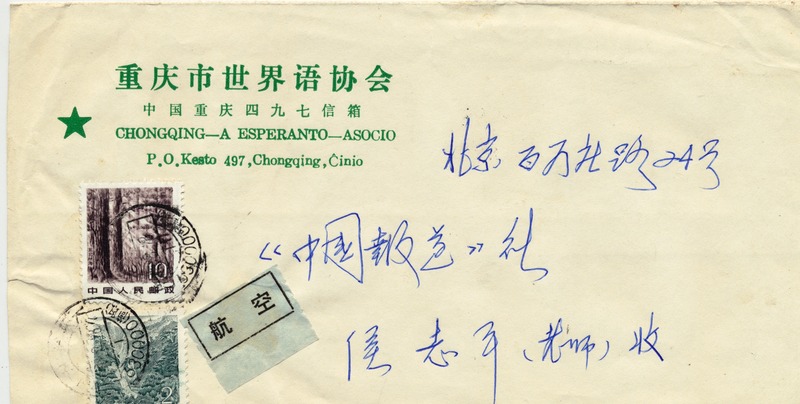 重庆市世界语协会
中国重庆四九七信箱
CHONGQING—A ESPERANTO—ASOCIO
P.O.Kesto 497,Chongqing,Ĉinio
北京百万庄路24号
《中国报道》社
侯志平(老师)收
航空
10
中国人民邮政
2